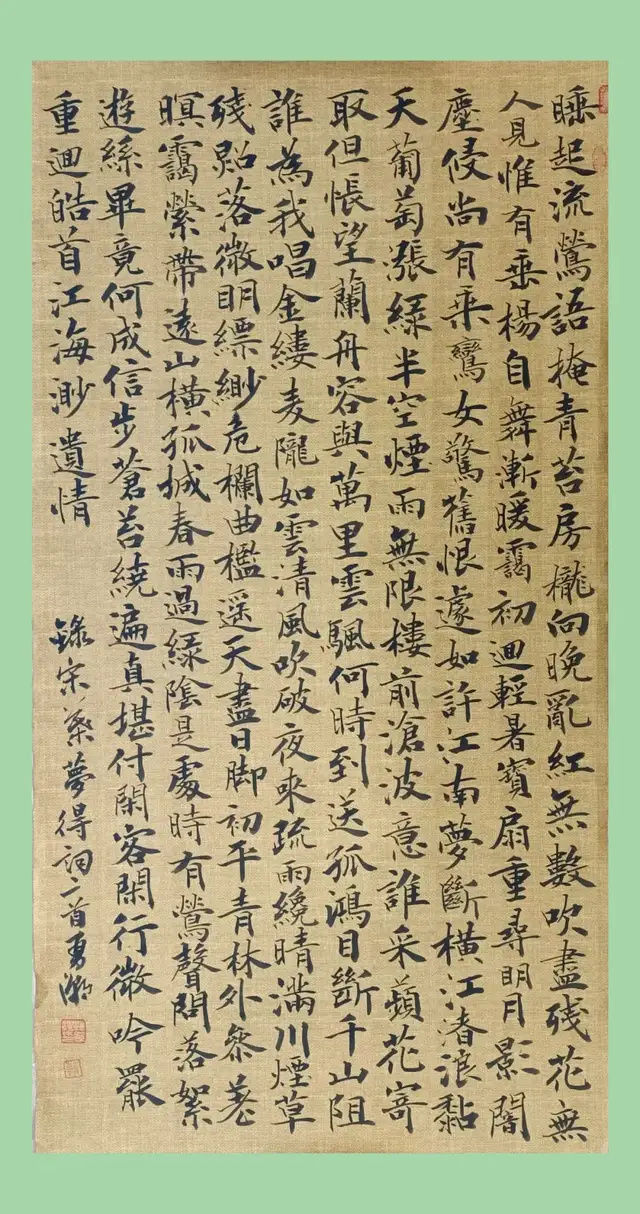 睡起流鶯語掩青苔房櫳向晚亂紅無數吹盡残花無
人見惟有垂楊自舞漸暖靄初迴輕暑寶扇重尋明月影闇
塵侵尚有乗鸞女驚舊恨遽如許江南夢斷橫江渚浪黏
天葡萄漲綠半空煙雨無限樓前滄波意誰采蘋花寄
取但悵望蘭舟容與萬里雲颿何時到送孤鴻目斷千山阻
誰為我唱金縷麦隴如雲清風吹破夜來疏雨纔晴滿川煙草
残照落微明縹緲危欄曲檻遥天盡日脚初平青林外参差
暝靄縈帶遠山橫孤城春雨過綠陰是處時有鶯聲問落絮
遊絲畢竟何成信步蒼苔繞遍真堪付閑客閑行微吟罷
重迴皓首江海渺遺情
錄宋葉夢得詞二首勇